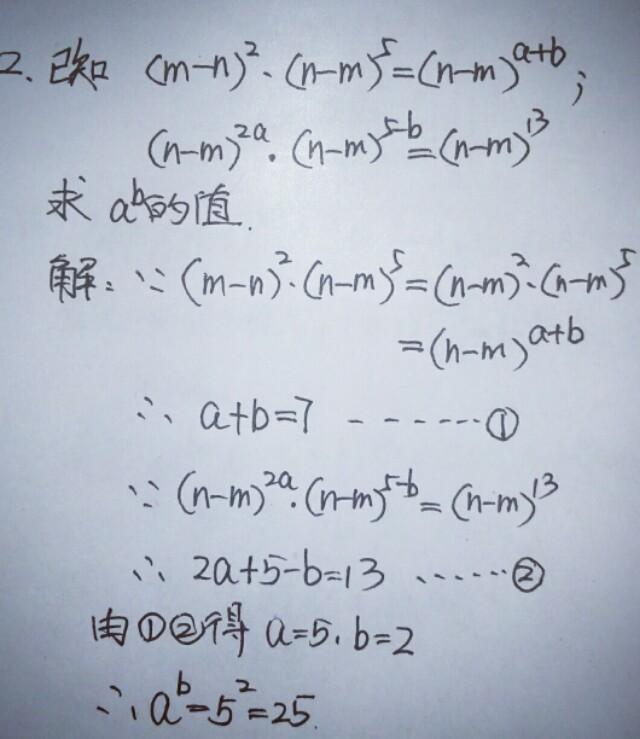 2. 已知 (m-n)²·(n-m)⁵=(n-m)ᵃ⁺ᵇ;
(n-m)²ᵃ·(n-m)⁵⁻ᵇ=(n-m)¹³
求 aᵇ的值.
解: ∵ (m-n)²·(n-m)⁵=(n-m)²·(n-m)⁵
=(n-m)ᵃ⁺ᵇ
∴ a+b=7 -------①
∵ (n-m)²ᵃ·(n-m)⁵⁻ᵇ=(n-m)¹³
∴ 2a+5-b=13 ……②
由①②得 a=5、b=2
∴ aᵇ=5²=25.